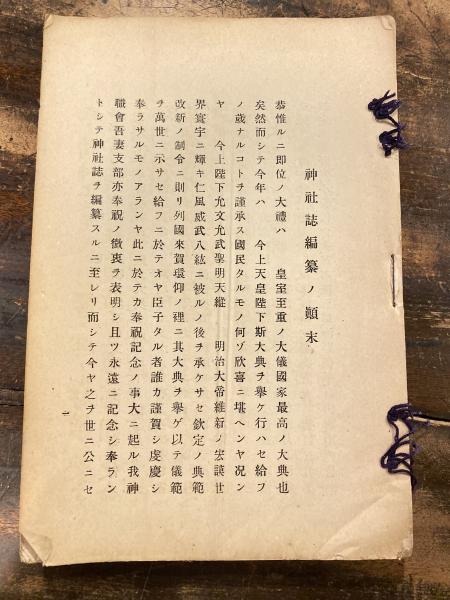 神社誌編纂ノ顚末
恭惟ルニ即位ノ大禮ハ　皇室至重ノ大儀國家最高ノ大典也
矣然而シテ今年ハ　今上天皇陛下斯大典ヲ擧ケ行ハセ給フ
ノ歲ナルコトヲ謹承ス國民タルモノ何ゾ欣喜ニ堪ヘンヤ况ン
ヤ　今上陛下允文允武聖明天縱　明治大帝維新ノ宏謨世
界寰宇ニ輝キ仁風威武八紘ニ被ルノ後ヲ承ケサセ欽定ノ典範
改新ノ制令ニ則リ列國來賀環仰ノ裡ニ其大典ヲ擧ゲ以テ儀範
ヲ萬世ニ示サセ給フニ於テオヤ臣子タル者誰カ謹賀シ虔慶シ
奉ラサルモノアランヤ此ニ於テカ奉祝記念ノ事大ニ起ル我神
職會吾妻支部亦奉祝ノ微衷ヲ表明シ且ツ永遠ニ記念シ奉ラン
トシテ神社誌ヲ編纂スルニ至レリ而シテ今ヤ之ヲ世ニ公ニセ
一